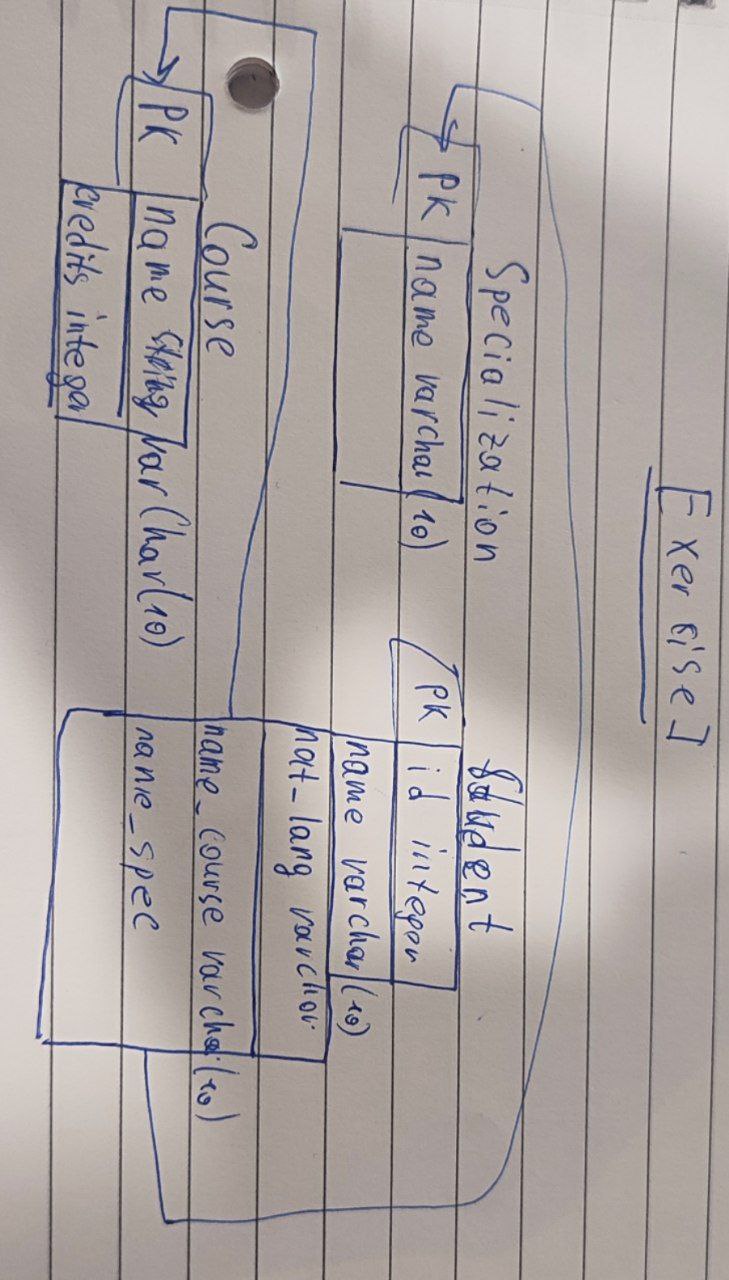 [Exercise]
Specialization
PK name varchar(10)
Student
PK id integer
name varchar(10)
nat_lang varchar
name_course varchar(10)
name_spec
Course
PK name string varchar(10)
credits integer